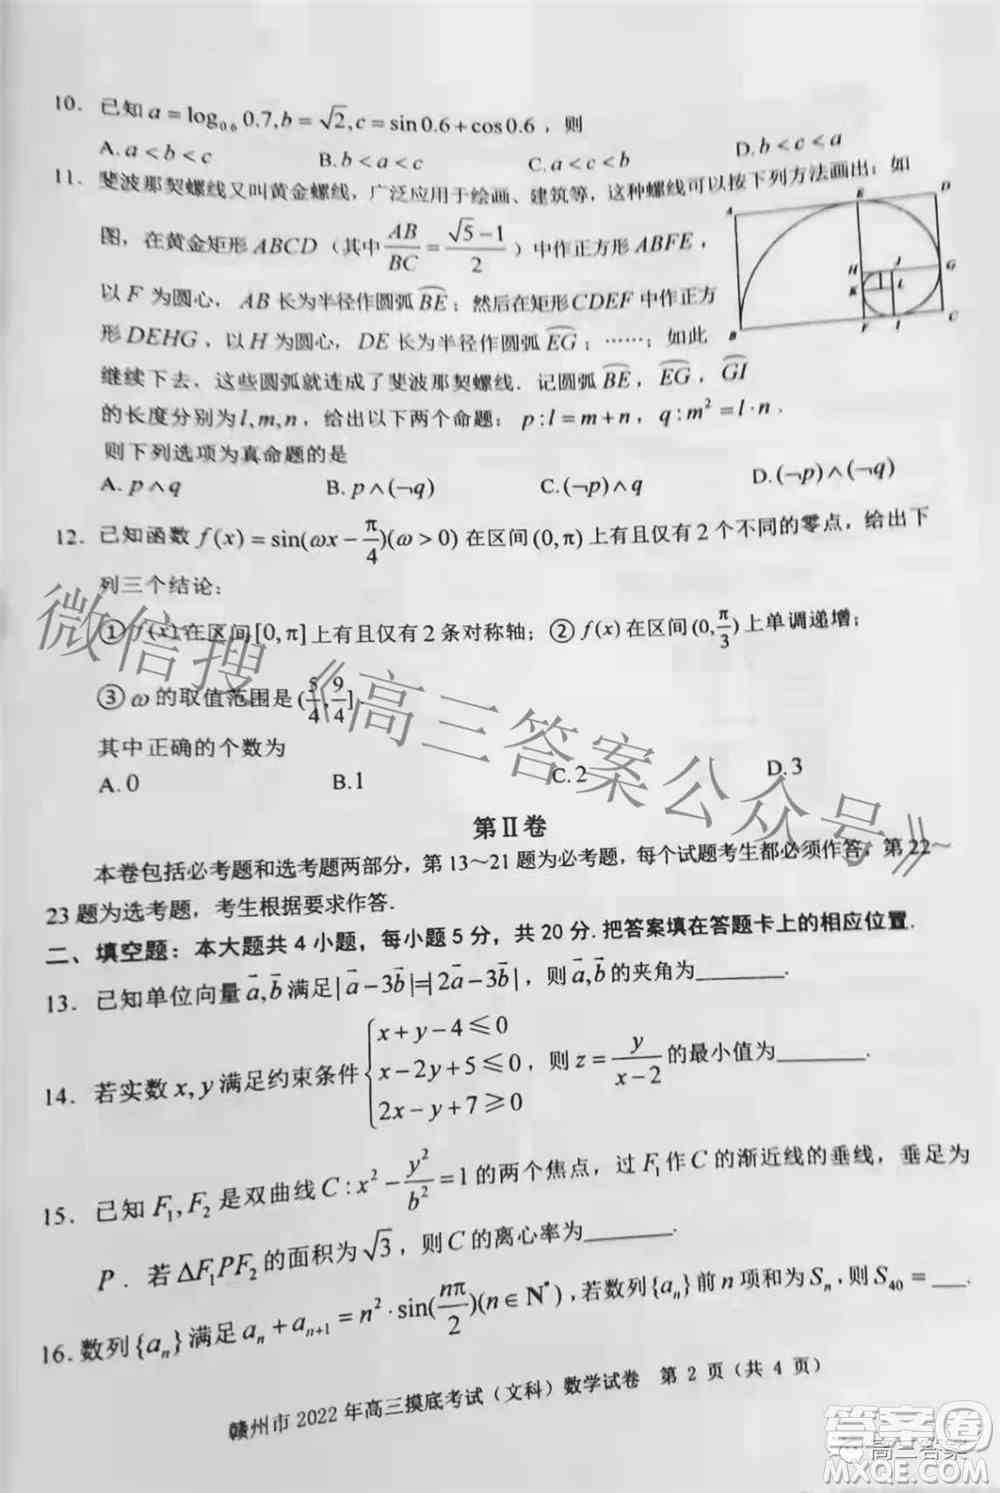 10. 已知 a = log₀.₆ 0.7, b = √2, c = sin 0.6 + cos 0.6，则
A. a < b < c B. b < a < c C. a < c < b D. b < c < a
11. 斐波那契螺线又叫黄金螺线，广泛应用于绘画、建筑等，这种螺线可以按下列方法画出：如
图，在黄金矩形 ABCD（其中 AB/BC = (√5−1)/2）中作正方形 ABFE，
以 F 为圆心，AB 长为半径作圆弧 B͡E；然后在矩形 CDEF 中作正方
形 DEHG，以 H 为圆心，DE 长为半径作圆弧 E͡G；……；如此
继续下去，这些圆弧就连成了斐波那契螺线. 记圆弧 B͡E, E͡G, G͡I
的长度分别为 l, m, n，给出以下两个命题：p : l = m + n，q : m² = l · n .
则下列选项为真命题的是
A. p ∧ q B. p ∧ (¬q) C. (¬p) ∧ q D. (¬p) ∧ (¬q)
A E D
H J G
K L
B F I C
12. 已知函数 f(x) = sin(ωx − π/4)(ω > 0) 在区间 (0, π) 上有且仅有 2 个不同的零点，给出下
列三个结论：
① f(x) 在区间 [0, π] 上有且仅有 2 条对称轴；② f(x) 在区间 (0, π/3) 上单调递增；
③ ω 的取值范围是 (5/4, 9/4]
其中正确的个数为
A. 0 B. 1 C. 2 D. 3
第 II 卷
本卷包括必考题和选考题两部分，第 13～21 题为必考题，每个试题考生都必须作答，第 22～
23 题为选考题，考生根据要求作答.
二、填空题：本大题共 4 小题，每小题 5 分，共 20 分. 把答案填在答题卡上的相应位置.
13. 已知单位向量 a⃗, b⃗ 满足 |a⃗ − 3b⃗| = |2a⃗ − 3b⃗|，则 a⃗, b⃗ 的夹角为________.
14. 若实数 x, y 满足约束条件 { x + y − 4 ⩽ 0
x − 2y + 5 ⩽ 0，则 z = y/(x − 2) 的最小值为________.
2x − y + 7 ⩾ 0
15. 已知 F₁, F₂ 是双曲线 C : x² − y²/b² = 1 的两个焦点，过 F₁ 作 C 的渐近线的垂线，垂足为
P . 若 ΔF₁PF₂ 的面积为 √3，则 C 的离心率为________.
16. 数列 {aₙ} 满足 aₙ + aₙ₊₁ = n² · sin(nπ/2)(n ∈ N*), 若数列 {aₙ} 前 n 项和为 Sₙ, 则 S₄₀ = ___.
赣州市 2022 年高三摸底考试（文科）数学试卷 第 2 页（共 4 页）
微信搜《高三答案公众号》
高三答案
答案圈
MXQE.COM